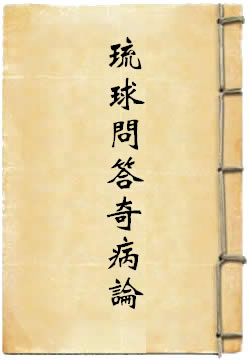 琉球問答奇病論